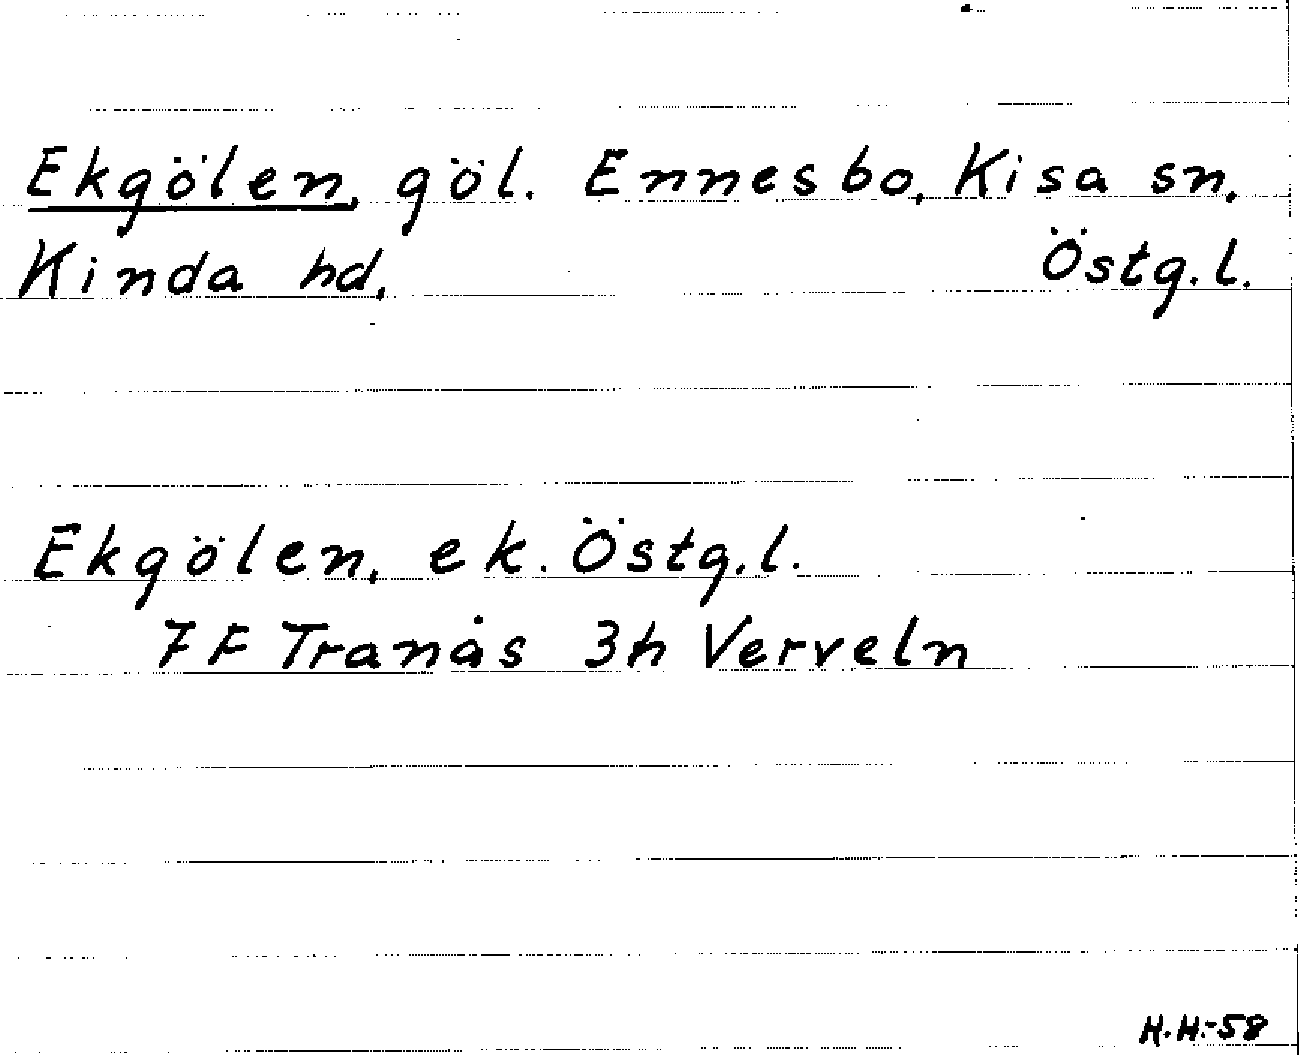 Ekgölen, göl. Ennesbo, Kisa sn,
Kinda hd, Östg.l.
Ekgölen, ek. Östg.l.
7 F Tranås 3h Verveln
H.H.-58